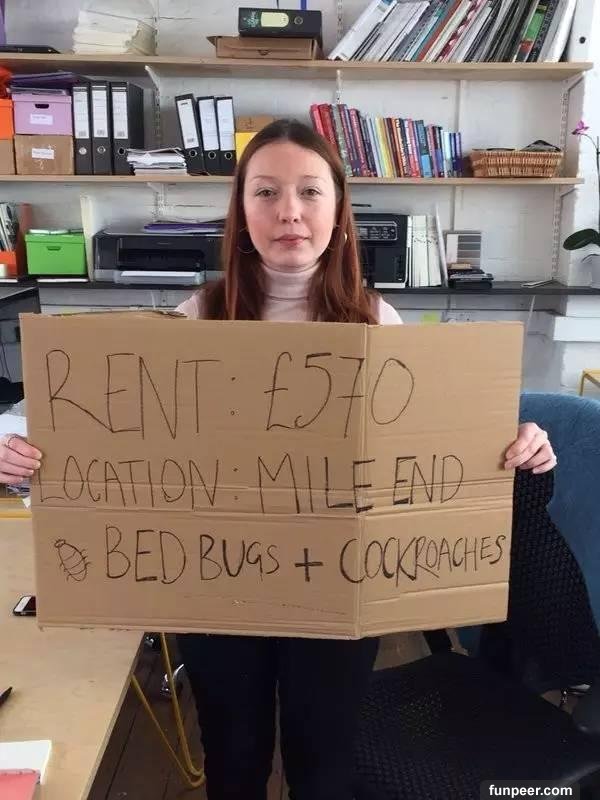 RENT: £570
LOCATION: MILE END
BED BUGS + COCKROACHES
funpeer.com